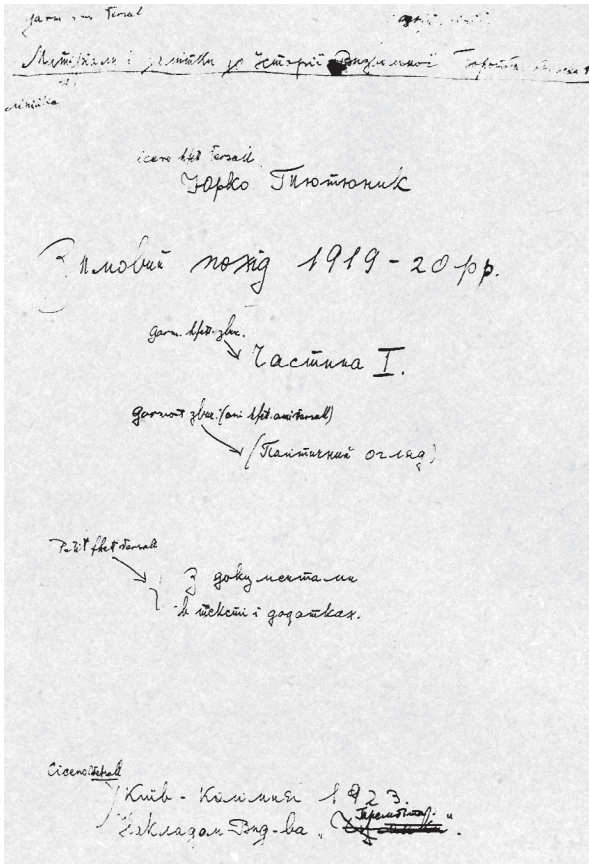 garm
Матеріяли і до історії Визвольної Боротьби
cicero hfet tersall
Юрко Тютюник
Зимовий похід 1919-20 рр.
garm. hfet. zbw.
Частина I.
garmont zbw. (ani hfet. ani tersall)
(Політичний огляд)
Petit tersall
З документами
в тексті і додатках.
Cicero tersall
Київ - Коломия 1923.
Накладом Вид-ва „ “.